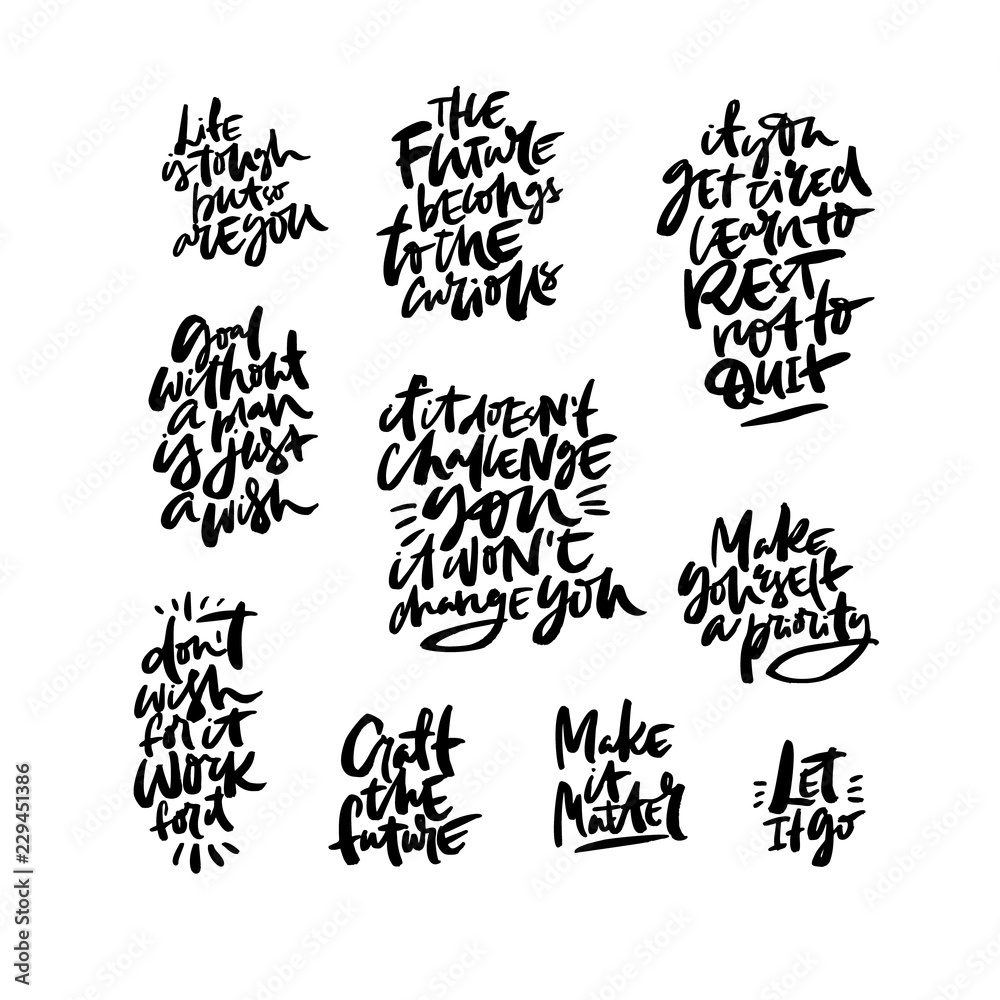 Life
is tough
but so
are you
THE
Future
belongs
to the
curious
if you
get tired
learn to
REST
not to
QUIT
Goal
without
a plan
is just
a wish
if it doesn't
challenge
you
it won't
change you
Make
yourself
a priority
don't
wish
for it
work
for it
Craft
the
future
Make
it
Matter
Let
It go
Adobe Stock | #229451386